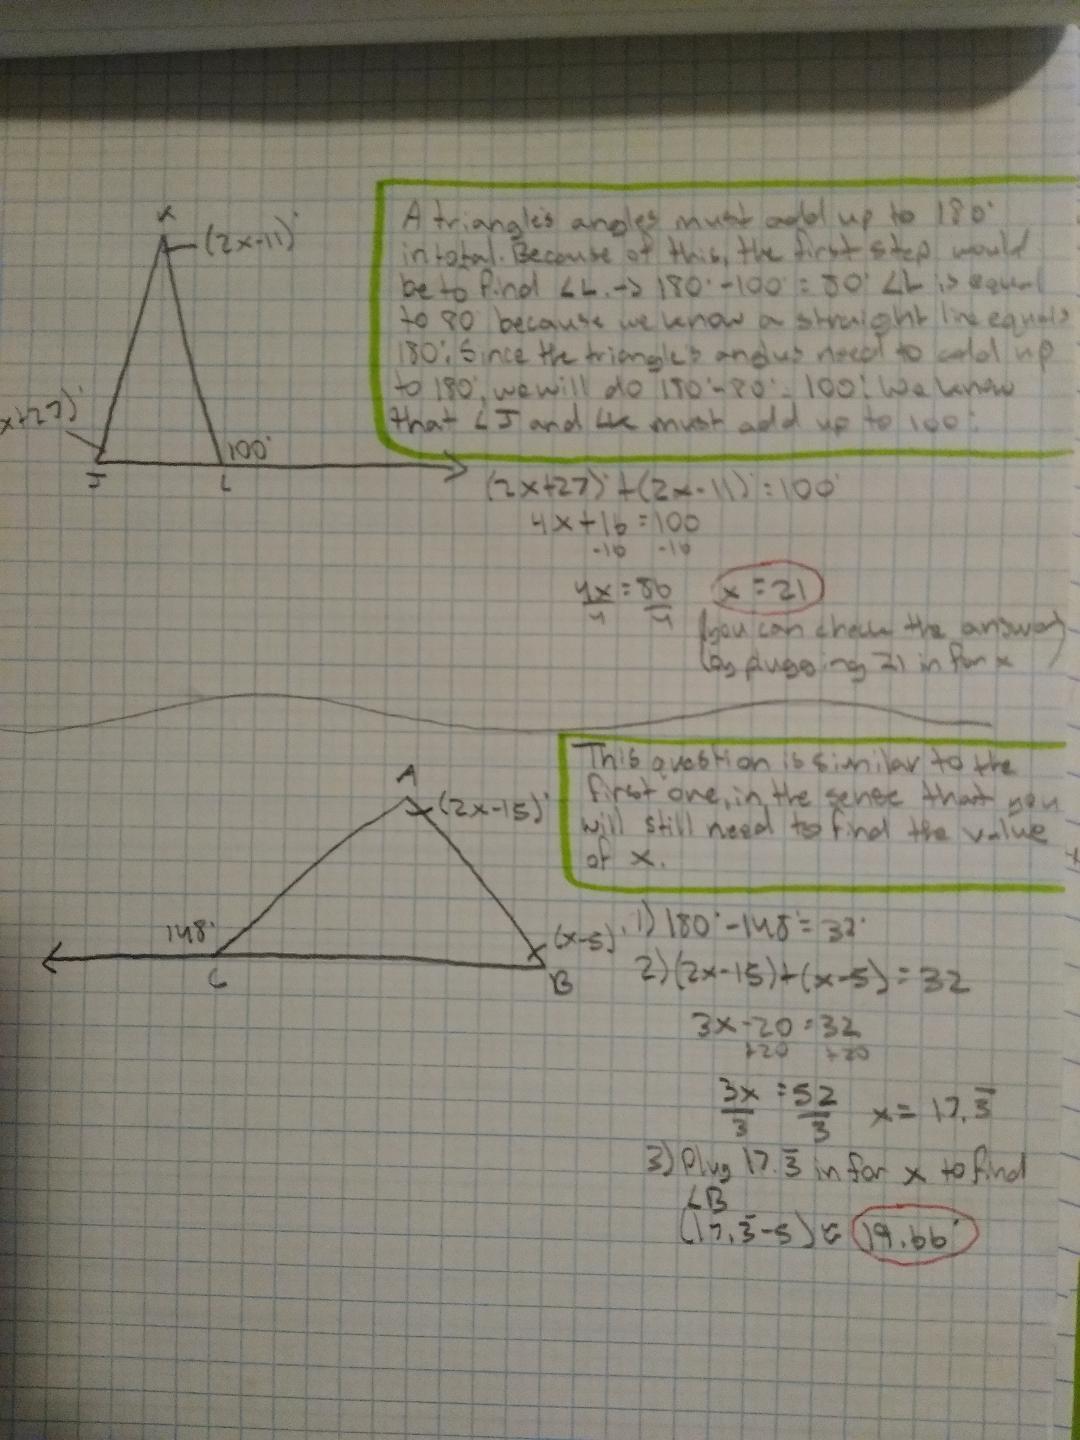 K
(2x-11)°
x+27)°
100°
J
L
A triangle's angles must add up to 180°
in total. Because of this, the first step would
be to find ∠L. → 180°-100° = 80° ∠L is equal
to 80 because we know a straight line equals
180°. Since the triangle's angles need to add up
to 180°, we will do 180°-80° = 100°. We know
that ∠J and ∠K must add up to 100°.
(2x+27)° + (2x-11)° = 100°
4x+16 = 100
-16 -16
4x = 86
4 4
x = 21
(you can check the answer)
by plugging 21 in for x
A
(2x-15)°
148°
(x-5)°
C
B
This question is similar to the
first one, in the sense that you
will still need to find the value
of x.
1) 180°-148° = 32°
2) (2x-15)+(x-5) = 32
3x-20 = 32
+20 +20
3x = 52
3 3
x = 17.3̅
3) Plug 17.3̅ in for x to find
∠B
(17.3̅-5) = 19.66°